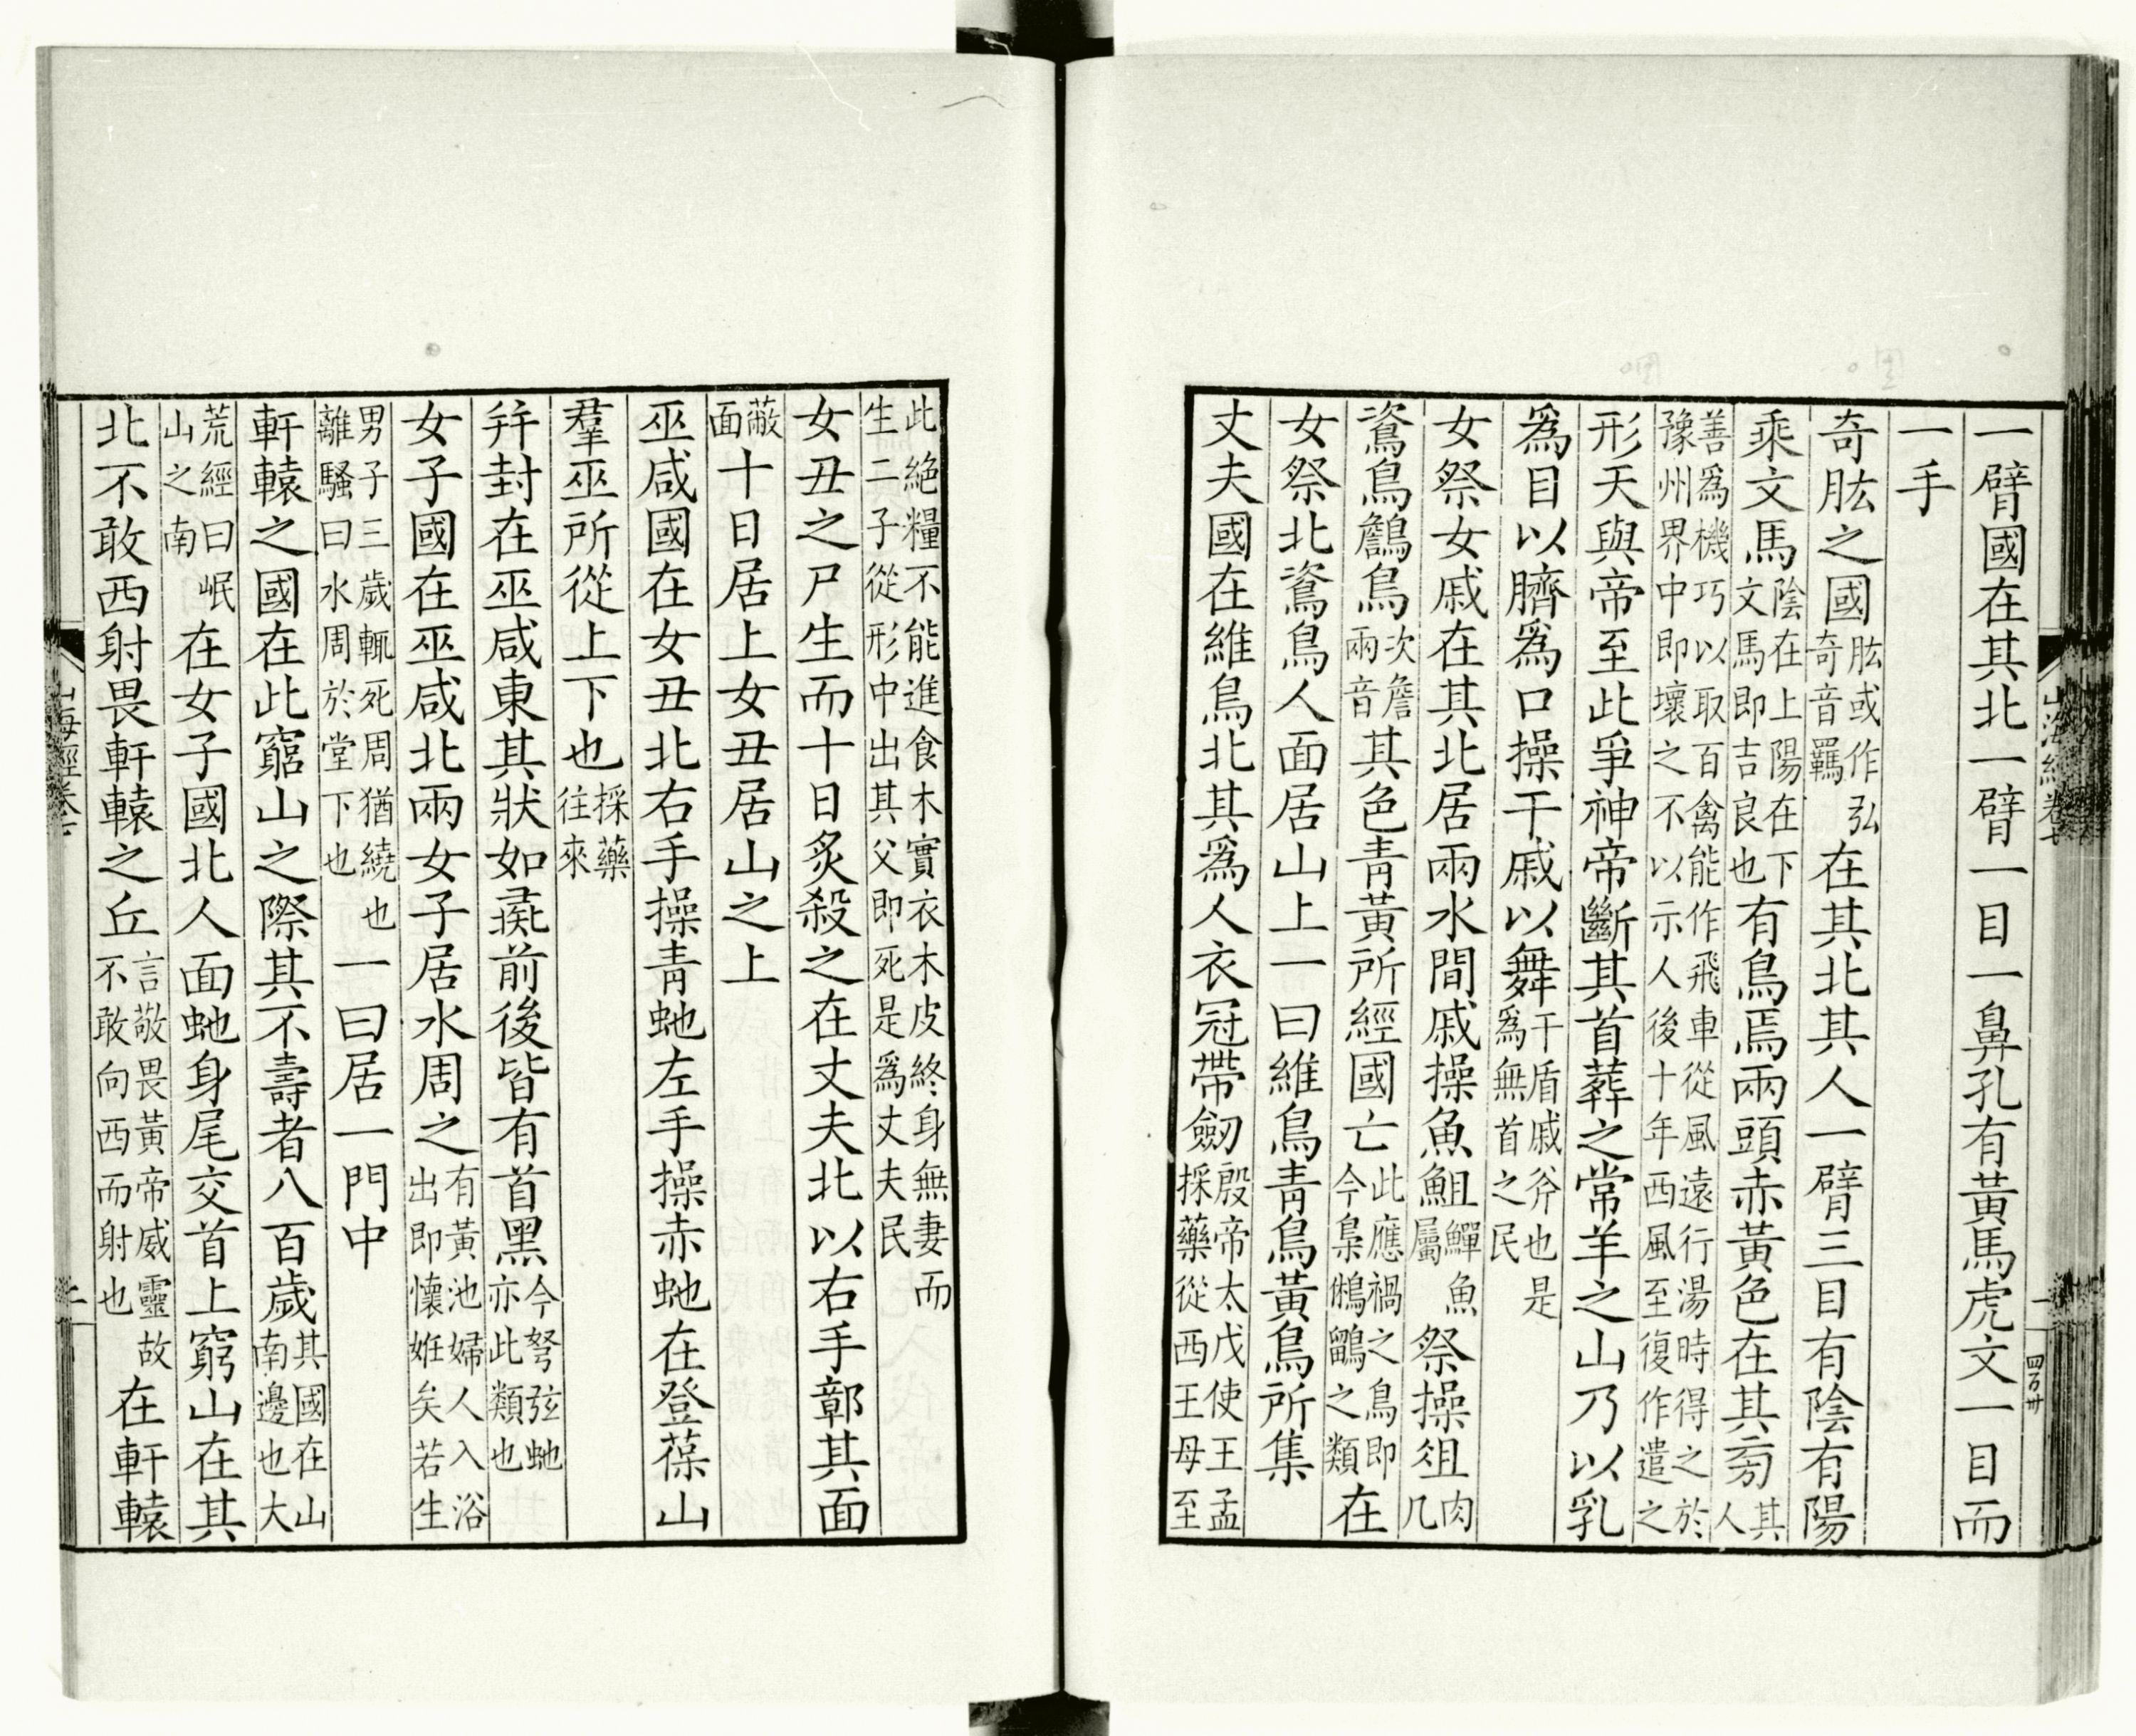 一臂國在其北一臂一目一鼻孔有黃馬虎文一目而
一手
奇肱之國肱或作弘奇音羈在其北其人一臂三目有陰有陽
乘文馬陰在上陽在下文馬即吉良也有鳥焉兩頭赤黃色在其旁其人
善爲機巧以取百禽能作飛車從風遠行湯時得之於豫州界中即壞之不以示人後十年西風至復作遣之
形天與帝至此爭神帝斷其首葬之常羊之山乃以乳
爲目以臍爲口操干戚以舞干盾戚斧也是爲無首之民
女祭女戚在其北居兩水間戚操魚䱉鱓魚屬祭操俎肉几
䳐鳥𪆻鳥次詹兩音其色青黃所經國亡此應禍之鳥即今梟鵂鶹之類在
女祭北䳐鳥人面居山上一曰維鳥青鳥黃鳥所集
丈夫國在維鳥北其爲人衣冠帶劒殷帝太戊使王孟採藥從西王母至
此絶糧不能進食木實衣木皮終身無妻而生二子從形中出其父即死是爲丈夫民
女丑之尸生而十日炙殺之在丈夫北以右手鄣其面
蔽面十日居上女丑居山之上
巫咸國在女丑北右手操青虵左手操赤虵在登葆山
羣巫所從上下也採藥往來
并封在巫咸東其狀如彘前後皆有首黑今弩弦虵亦此類也
女子國在巫咸北兩女子居水周之有黃池婦人入浴出即懷姙矣若生
男子三歲輒死周猶繞也離騷曰水周於堂下也一曰居一門中
軒轅之國在此窮山之際其不壽者八百歲其國在山南邊也大
荒經曰岷山之南在女子國北人面虵身尾交首上窮山在其
北不敢西射畏軒轅之丘言敬畏黃帝威靈故不敢向西而射也在軒轅
山海經卷七